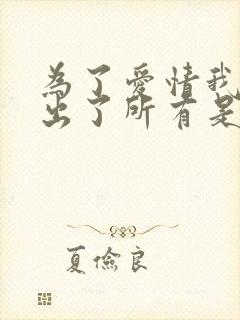 為了愛情我
出了所有是
夏儉良